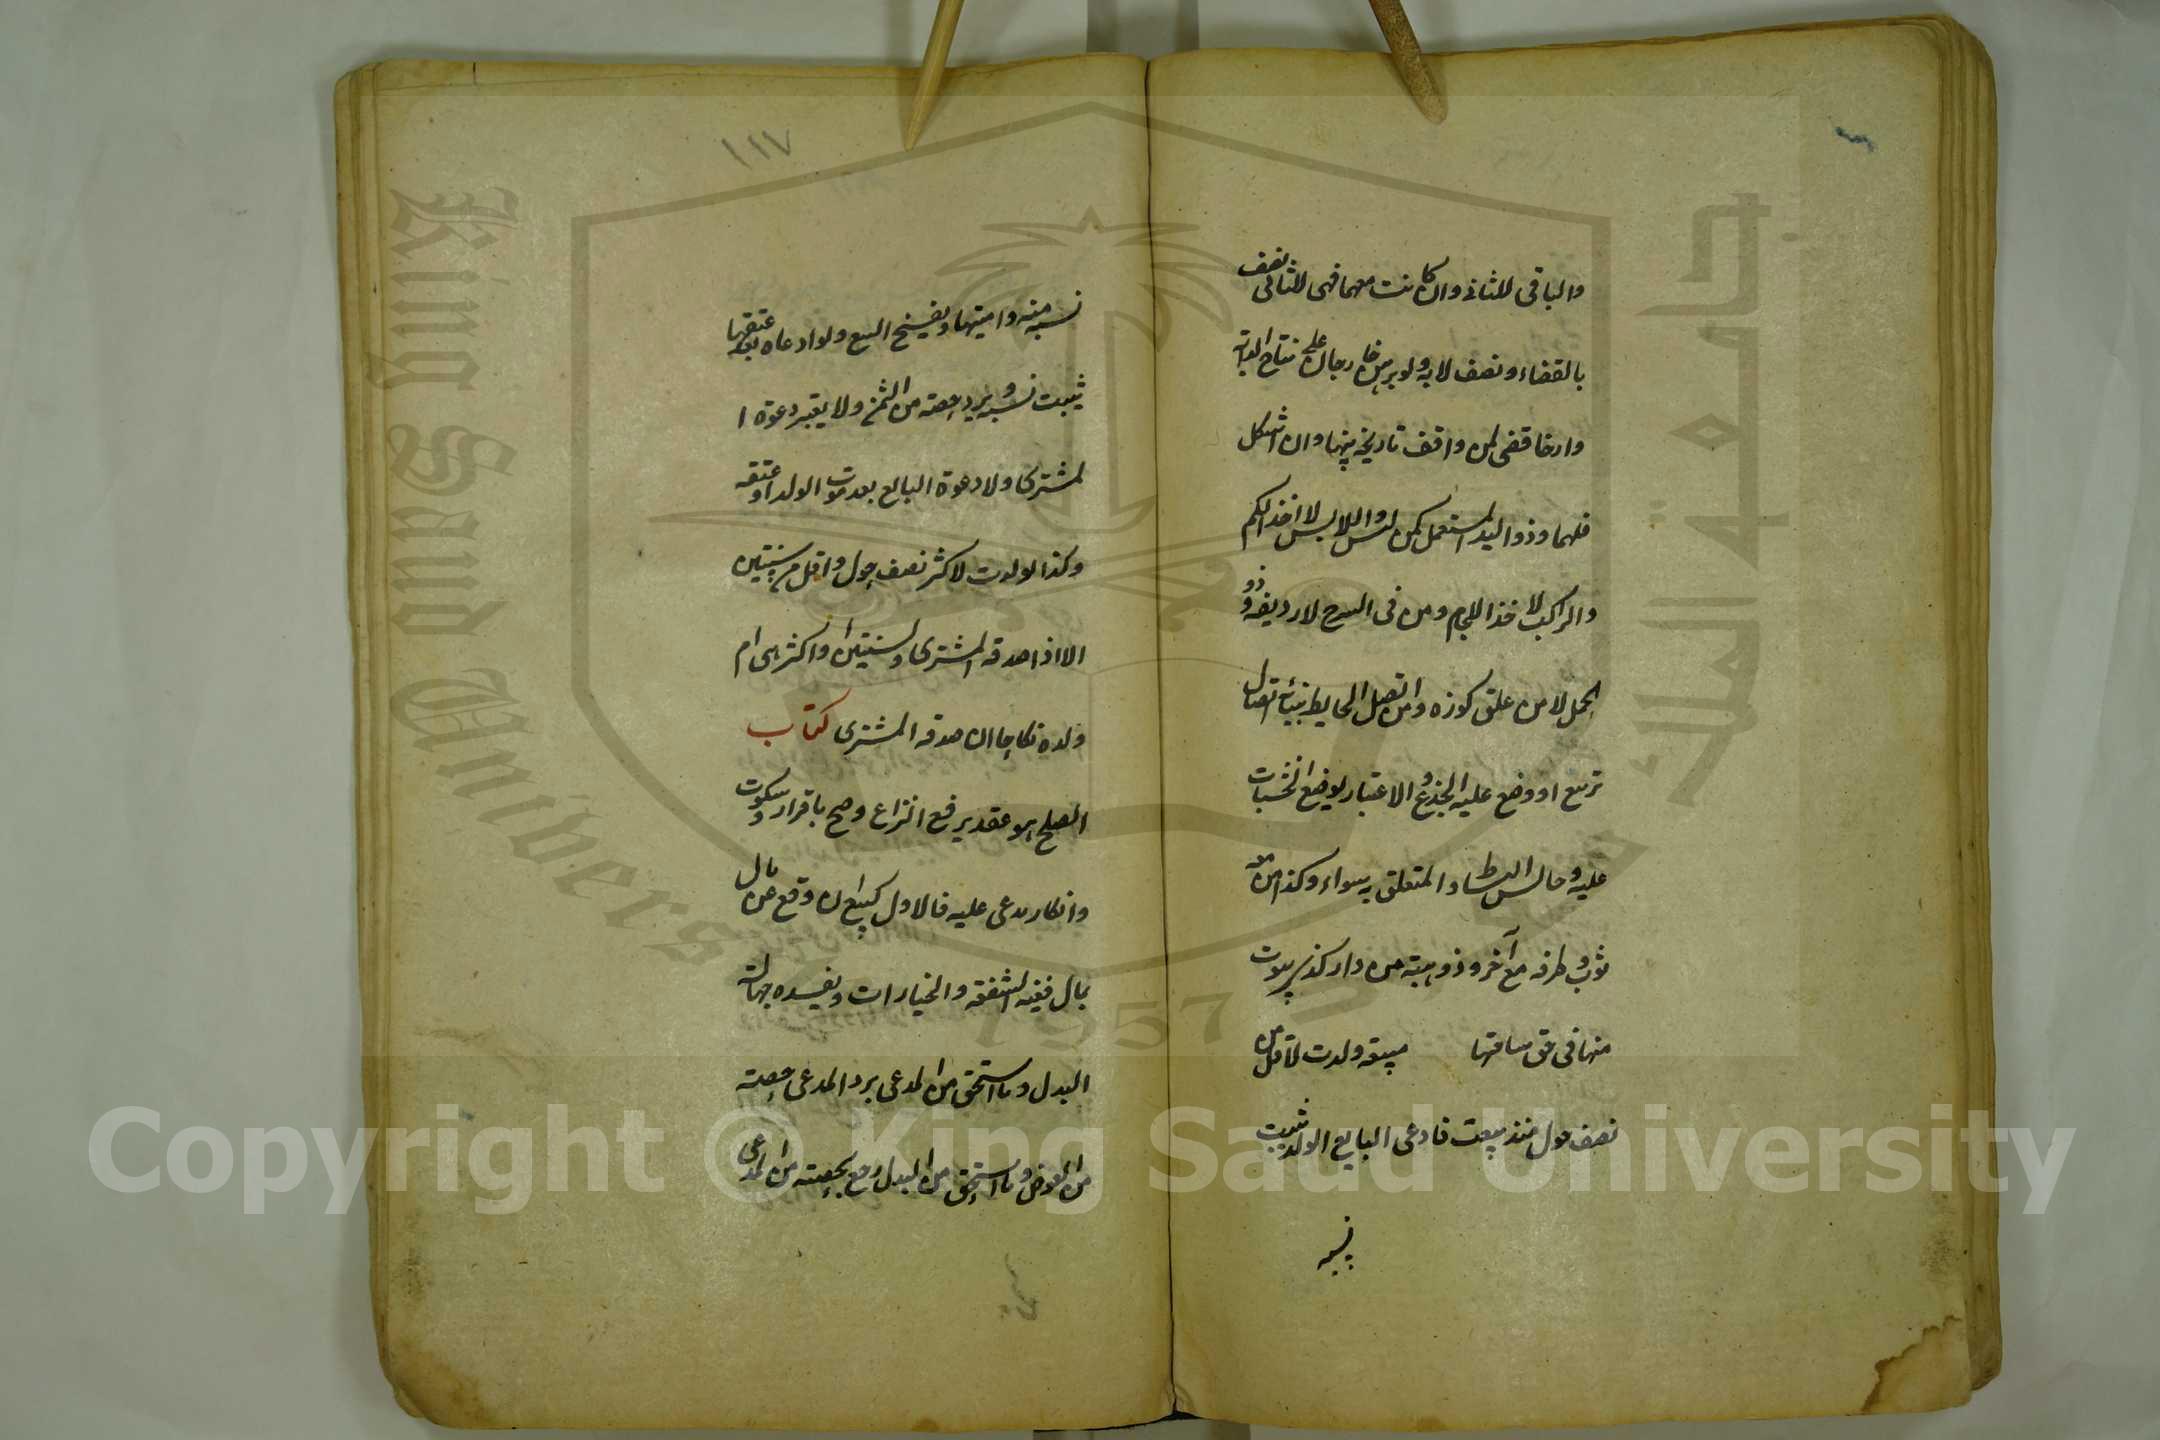 والباقى للثانى وان كانت معهما فهى للثانى نصف
بالقضاء ونصف لا به ولو برهن خارجان على نتاج دابة
وارخا قضى لمن وافق تاريخه سنها وان اشكل
فلهما وذو اليد المستعمل كمن لبس واللابس لا اخذ الكم
والراكب لا اخذ اللجام ومن فى السرج لا رديفه وذو
الحمل لا من علق كوزه ومن اتصل الحايط ببنائه اتصال
تربيع او وضع عليه الجذوع لا اعتبار بوضع الخشبات
عليه وجالس البساط والمتعلق به سواء وكذا من معه
ثوب وطرفه مع آخر وذو بيت من دار كذى بيوت
منها فى حق ساحتها مبيعة ولدت لاقل من
نصف حول منذ بيعت فادعى البايع الولد ثبت
نسبه
١١٧
نسبه منه واميتها ويفسخ البيع ولو ادعاه بعد عتقها
يثبت نسبه ويرد حصته من الثمن ولا يعتبر دعوة ا
لمشترى ولا دعوة البايع بعد موت الولد او عتقه
وكذا لو ولدت لاكثر نصف حول واقل من سنتين
الا اذا صدقه المشترى ولسنتين او اكثر هى ام
ولده نكاحا ان صدقه المشترى كتاب
الصلح هو عقد يرفع النزاع وصح باقرار وسكوت
وانكار مدعى عليه فالاول كبيع ان وقع عن مال
بمال ففيه الشفعة والخيارات ويفسده جهالة
البدل وما استحق من المدعى يرد المدعى حصته
من العوض وما استحق من البدل رجع بحصته من المدعى
Copyright © King Saud University
King Saud University
جامعة الملك سعود
1957